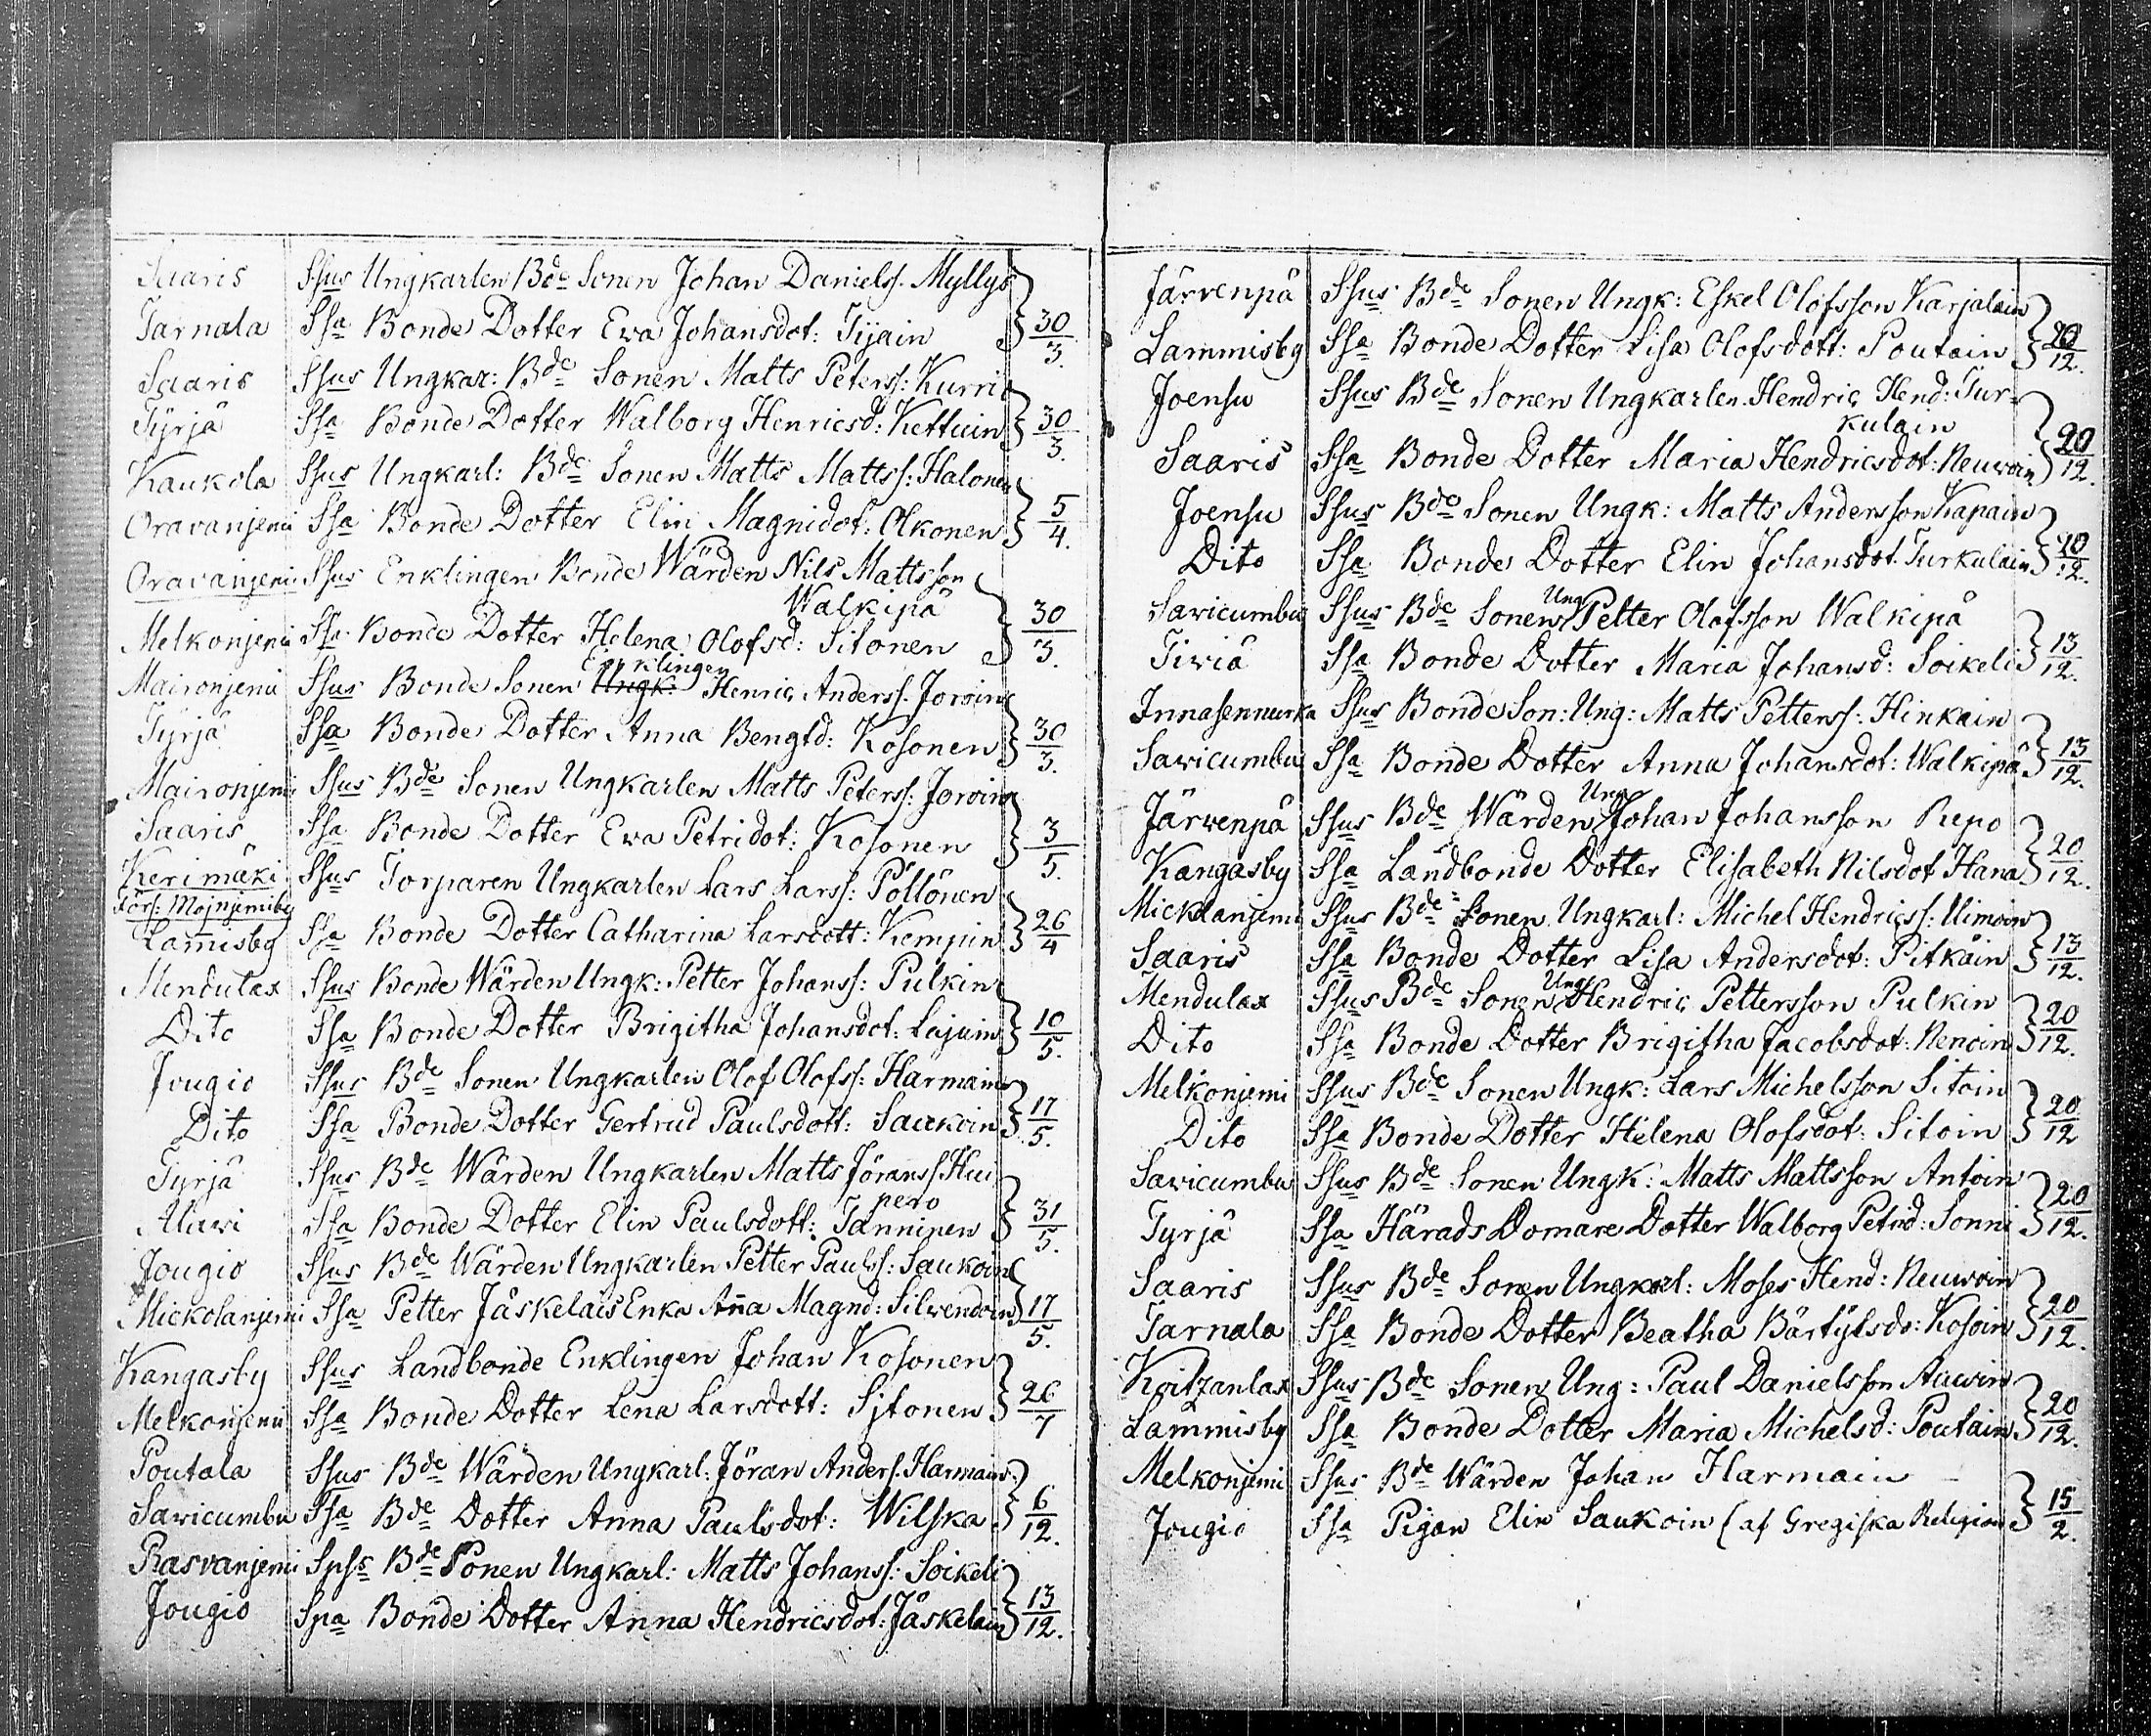 Saaris Ssus Ungkarlen Bde Sonen Johan Daniels/. Myllys
Tarnala Ssa Bonde Dotter Eva Johansdot: Tyjain 30/3.
Saaris Ssus Ungkar: Bde Sonen Matts Peters/: Kurri
Tyrjä Ssa Bonde Dotter Walborg Henricsd: Kettuin 30/3.
Kaukola Ssus Ungkarl: Bde Sonen Matts Matts/: Halonen
Oravanjemi Ssa Bonde Dotter Elin Magnidot: Olkonen 5/4.
Oravanjemi Ssus Enklingen Bonde Wärden Nils Mattsson
Walkipä
Melkonjemi Ssa Bonde Dotter Helena Olofsd: Sitonen 30/3.
Enklingen
Maironjemi Ssus Bonde Sonen Ungk: Henric Anders/. Joroin
Tyrjä Ssa Bonde Dotter Anna Bengtd: Kosonen 30/3.
Maironjemi Ssus Bde Sonen Ungkarlen Matts Peters/: Joroin
Saaris Ssa Bonde Dotter Eva Petridot: Kosonen 3/5.
Kerimäki Ssus Torparen Ungkarlen Lars Lars/: Pöllönen
Förs: Mojnjemiby
Lamisby Ssa Bonde Dotter Catharina Larsdott: Kempin 26/4
Mendulax Ssus Bonde Wärden Ungk: Petter Johans/: Pulkin
Dito Ssa Bonde Dotter Brigitha Johansdot: Lajuin 10/5.
Jougio Ssus Bde Sonen Ungkarlen Olof Olofs/: Harmain
Dito Ssa Bonde Dotter Gertrud Paulsdott: Saukoin 17/5.
Tyrjä Ssus Bde Wärden Ungkarlen Matts Jörans/. Hui
pero
Alawi Ssa Bonde Dotter Elin Paulsdott: Tanninen 31/5.
Jougio Ssus Bde Wärden Ungkarlen Petter Pauls/: Saukoin
Mickolanjemi Ssa Petter Jäskelais Enka Anna Magnd: Silvendoin 17/5.
Kangasby Ssus Landbonde Enklingen Johan Kosonen
Melkonjemi Ssa Bonde Dotter Lena Larsdott: Sjtonen 26/7
Poutala Ssus Bde Wärden Ungkarl: Jöran Anders/. Harmain
Savicumbu Ssa Bde Dotter Anna Paulsdot: Wilska 6/12.
Rasvanjemi Spss Bde Sonen Ungkarl: Matts Johans/: Soikeli
Jougio Spa Bonde Dotter Anna Hendricsdot: Jäskelain 13/12.
Järvenpä Ssus Bde Sonen Ungk: Eskel Olofsson Karjalain
Lammisby Ssa Bonde Dotter Lisa Olofsdott: Poutain 20/12.
Joensu Ssus Bde Sonen Ungkarlen Hendric Hend: Tur-
kulain
Saaris Ssa Bonde Dotter Maria Hendricsdot: Neuvoin 20/12.
Joensu Ssus Bde Sonen Ungk: Matts Andersson Kapain
Dito Ssa Bonde Dotter Elin Johansdot. Turkulain 20/12.
Ung
Savicumbu Ssus Bde Sonen Petter Olofsson Walkipä
Tiviä Ssa Bonde Dotter Maria Johansd: Soikeli 13/12.
Innasennurka Ssus Bonde Son: Ung: Matts Petters/: Hinkain
Savicumbu Ssa Bonde Dotter Anna Johansdot: Walkipä 13/12.
Ung
Järvenpä Ssus Bde Wärden Johan Johansson Repo
Kangasby Ssa Landbonde Dotter Elisabeth Nilsdot Hana 20/12.
Mickolanjemi Ssus Bde Sonen Ungkarl: Michel Hendrics/: Uimoin
Saaris Ssa Bonde Dotter Lisa Andersdot: Pitkäin 13/12.
Ung
Mendulax Ssus Bde Sonen Hendric Pettersson Pulkin
Dito Ssa Bonde Dotter Brigitha Jacobsdot: Nenoin 20/12.
Melkonjemi Ssus Bde Sonen Ungk: Lars Michelsson Sitoin
Dito Ssa Bonde Dotter Helena Olofsdot: Sitoin 20/12
Savicumbu Ssus Bde Sonen Ungk: Matts Mattsson Antoin
Tyrjä Ssa Härads Domare Dotter Walborg Petrid: Sonni 20/12.
Saaris Ssus Bde Sonen Ungkarl: Moses Hend: Neuvoin
Tarnala Ssa Bonde Dotter Beatha Bärtylsdo: Kosoin 20/12.
Koitzanlax Ssus Bde Sonen Ung: Paul Danielsson Auvin
Lammisby Ssa Bonde Dotter Maria Michelsd: Poutain 20/12.
Melkonjemi Ssus Bde Wärden Johan Harmain
Jougio Ssa Pigan Elin Saukoin (af Gregiska Religion 15/2.